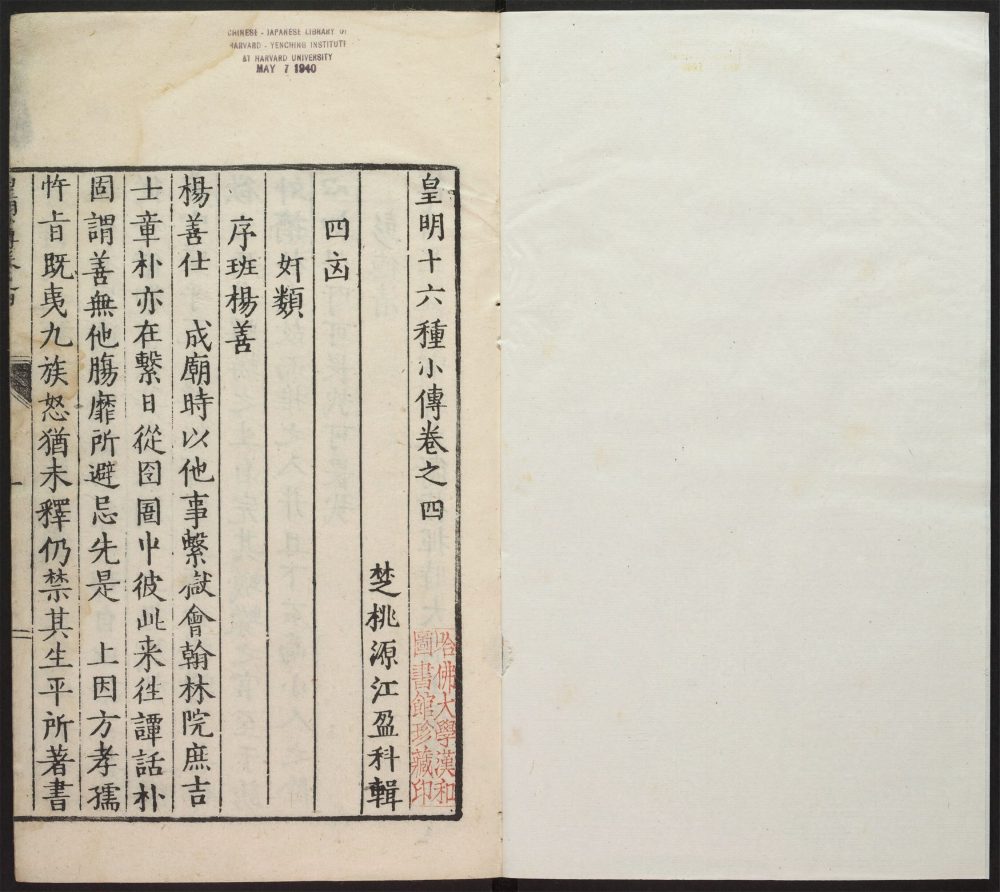 CHINESE - JAPANESE LIBRARY OF
HARVARD - YENCHING INSTITUTE
AT HARVARD UNIVERSITY
MAY 7 1940
皇明十六種小傳卷之四
楚桃源江盈科輯
哈佛大學漢和
圖書館珍藏印
四凶
奸類
序班楊善
楊善仕 成廟時以他事繫獄會翰林院庶吉
士章朴亦在繫日從囹圄中彼此来徃譚話朴
固謂善無他腸靡所避忌先是 上因方孝孺
忤㫖既夷九族怒猶未釋仍禁其生平所著書